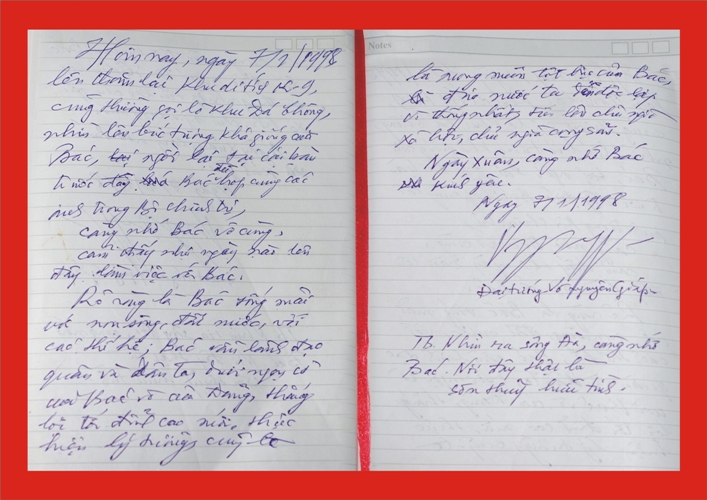 Hôm nay, ngày 7/1/1998
lên thăm lại Khu di tích K-9,
cũng thường gọi là Khu Đá Chông,
nhìn lên bức tượng khá giống của
Bác, ngồi lại tại cái bàn
trước đây Bác họp cùng các
anh trong Bộ chính trị,
càng nhớ Bác vô cùng,
cảm thấy như ngày nào lên
đây làm việc với Bác.
Rõ ràng là Bác sống mãi
với non sông, đất nước, với
các thế hệ; Bác vẫn lãnh đạo
quân và dân ta, dưới ngọn cờ
của Bác và của Đảng, thắng
lợi to lớn cao nữa, thực
hiện lý tưởng cũng
Notes
là mong muốn tột bực của Bác,
đưa nước ta độc lập
và thống nhất, tiến lên chủ nghĩa
xã hội, chủ nghĩa cộng sản.
Ngày Xuân, càng nhớ Bác
kính yêu.
Ngày 7/1/1998
Đại tướng Võ Nguyên Giáp
Tb. Nhìn ra sông Đà, càng nhớ
Bác. Nơi đây thật là
sơn thuỷ hữu tình.